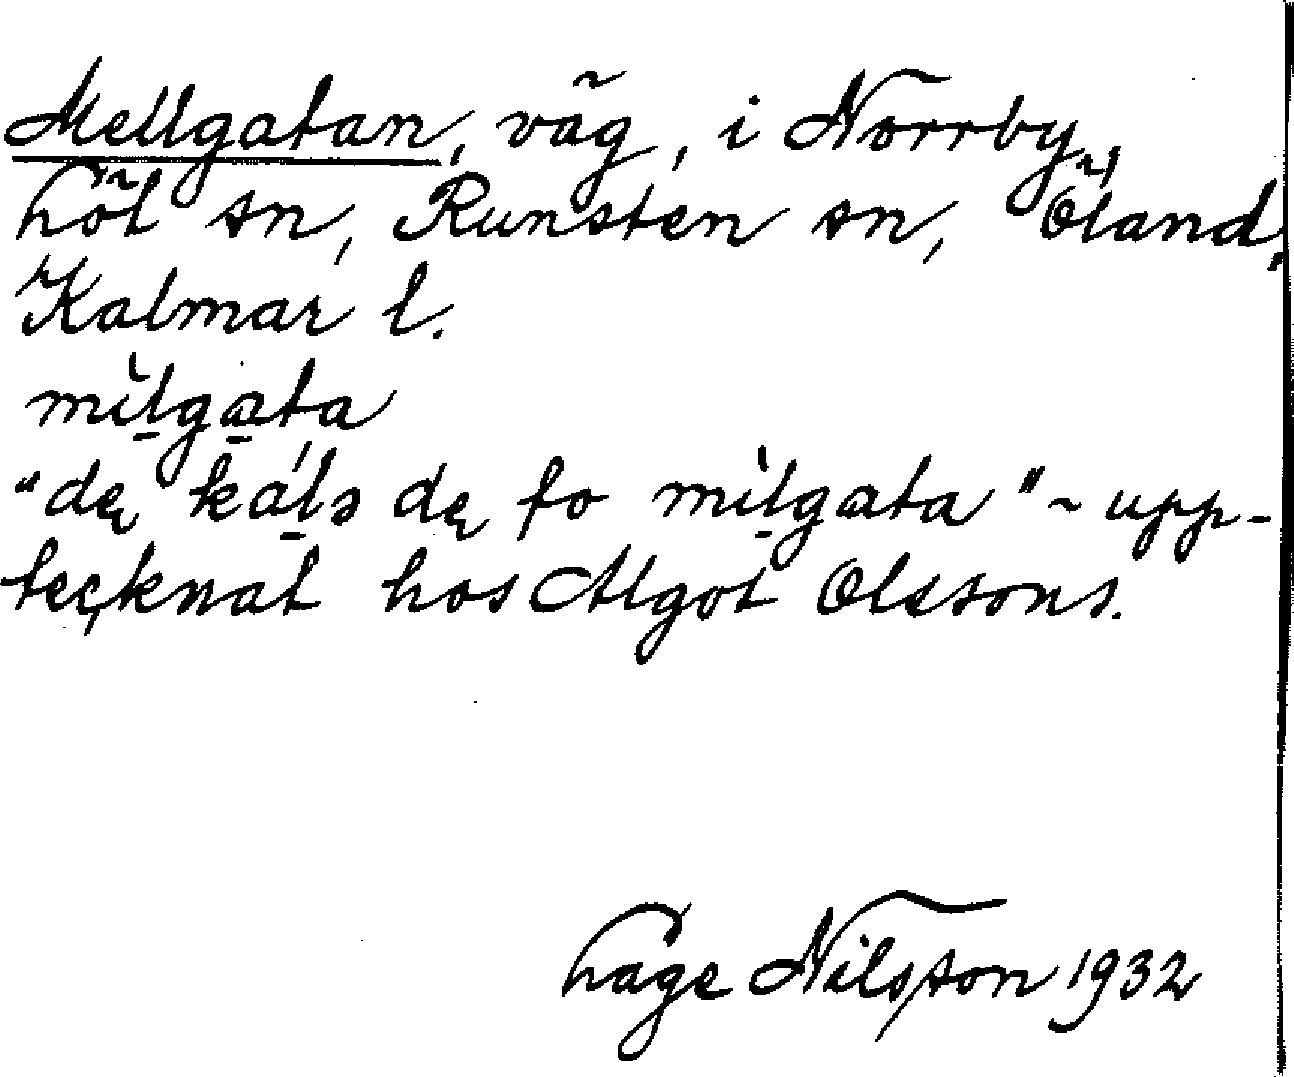 Mellgatan, väg, i Norrby,
höt sn, Runsten sn, Öland,
Kalmar l.
mìlgata
"dę káls dę fo mìlgata" ~ upp-
tecknat hos Algot Olssons.
håge Nilsson 1932